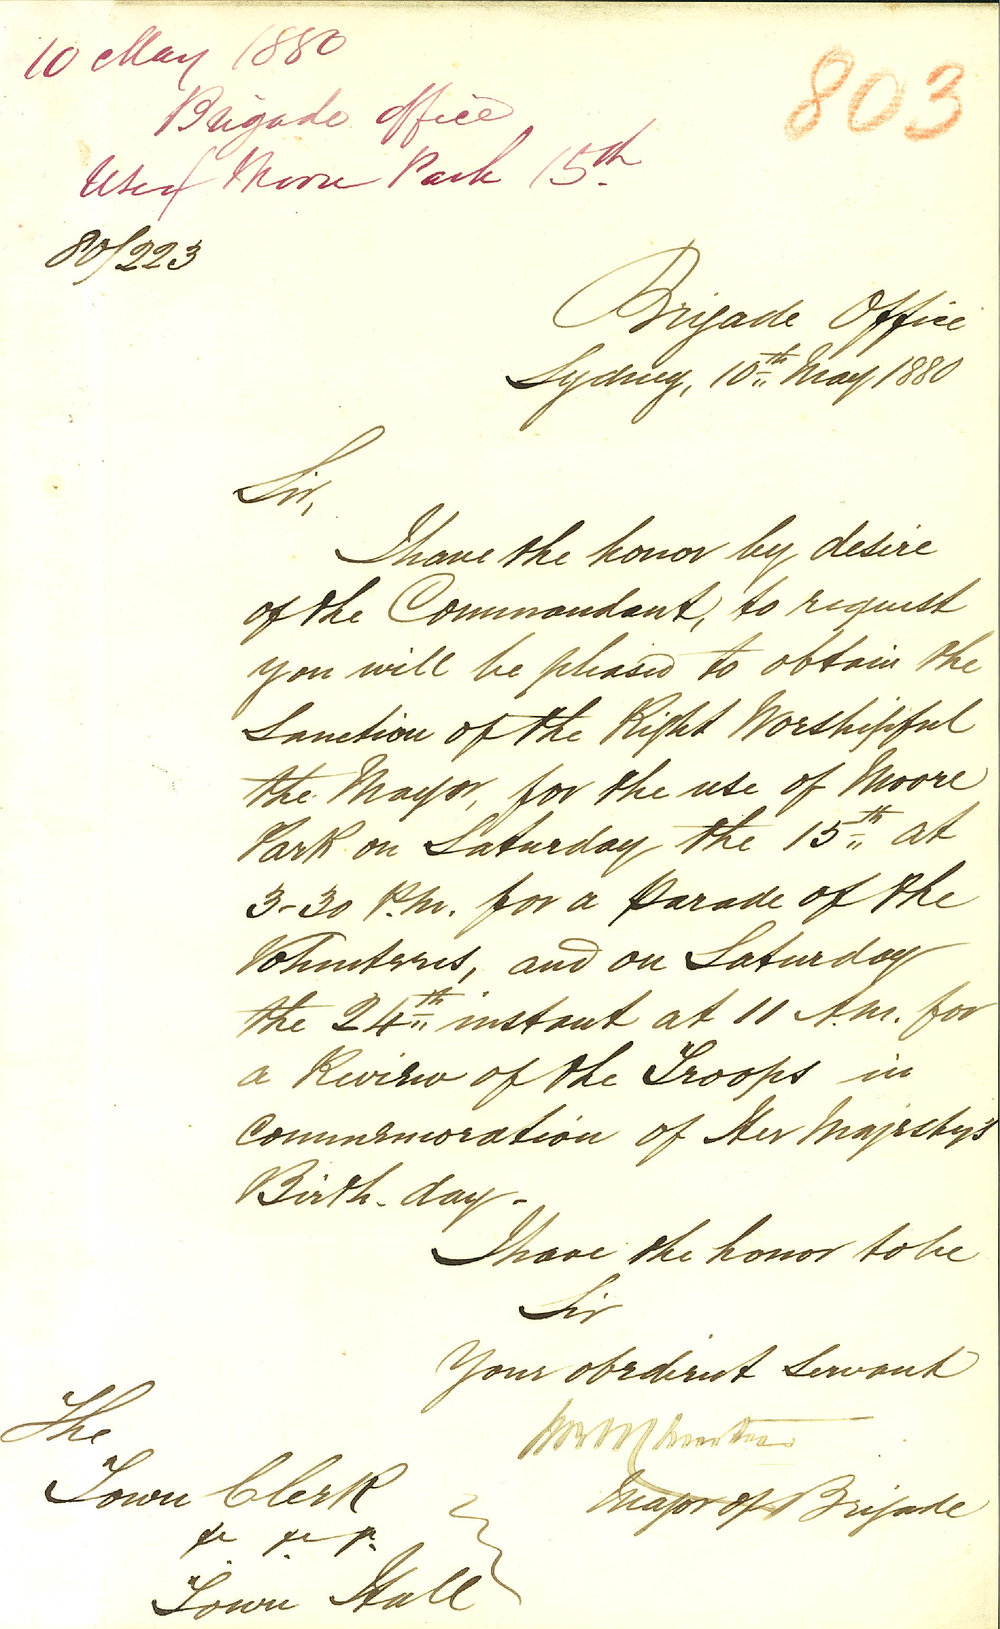 10 May 1880
Brigade office
Use of Moore Park 15th
803
80/223
Brigade Office
Sydney, 10th May 1880
Sir,
I have the honor by desire
of the Commandant, to request
you will be pleased to obtain the
Sanction of the Right Worshipful
the Mayor, for the use of Moore
Park on Saturday the 15th at
3-30 P.m. for a Parade of the
Volunteers, and on Saturday
the 24th instant at 11 A.m. for
a Review of the Troops in
Commemoration of Her Majesty's
Birth-day-
I have the honor to be
Sir
Your obedient Servant
Major of Brigade
The
Town Clerk
&c &c &c
Town Hall